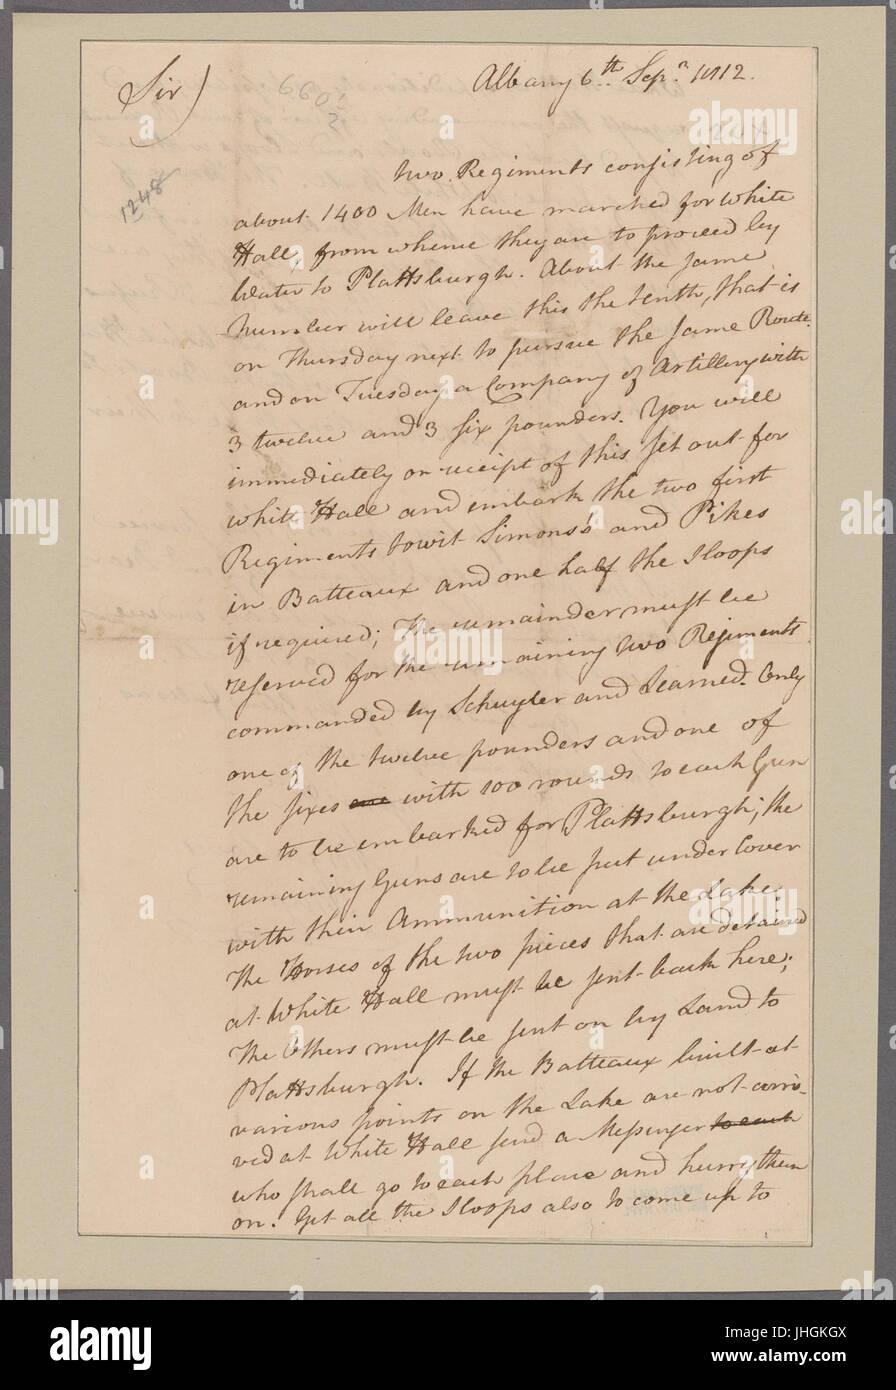 Albany 6th Sepr 1812.
Sir)
660½
1248
two Regiments consisting of
about 1400 Men have marched for White
Hall, from whence they are to proceed by
Water to Plattsburgh. About the same
number will leave this the tenth, that is
on Thursday next to pursue the same Route.
and on Tuesday a Company of Artillery with
3 twelve and 3 six pounders. You will
immediately on receipt of this set out for
white Hall and embark the two first
Regiments towit Simons's and Pikes
in Batteaux and one half the Sloops
if required; The remainder must be
reserved for the remaining two Regiments
commanded by Schuyler and Learned. Only
one of the twelve pounders and one of
the sixes one with 100 rounds to each Gun
are to be embarked for Plattsburgh; the
remaining Guns are to be put under Cover
with their Ammunition at the Lake.
The Horses of the two pieces that are detained
at White Hall must be sent back here;
The Others must be sent on by Land to
Plattsburgh. If the Batteaux built at
various points on the Lake are not arri-
ved at White Hall send a Messenger to each
who shall go to each place and hurry them
on. Get all the Sloops also to come up to
alamy
alamy stock photo
JHGKGX
www.alamy.com